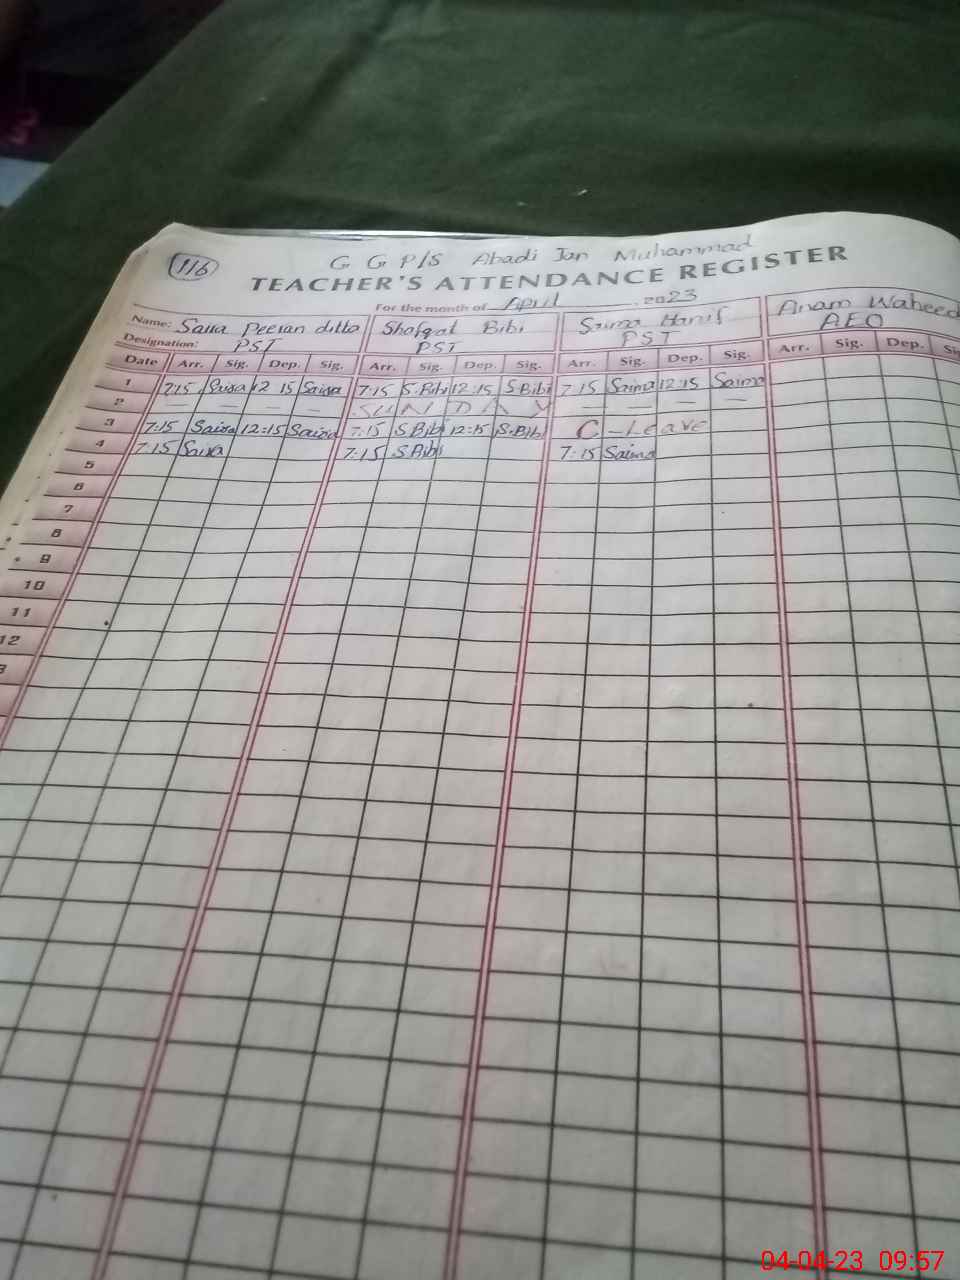 116
G G P/S Abadi Jan Muhammad
TEACHER'S ATTENDANCE REGISTER
For the month of April, 2023
Name: Peeran ditta Shafqat Bibi Saima Hanif Anam Waheed
Designation: PST PST PST AEO
Date Arr. Sig. Dep. Sig. Arr. Sig. Dep. Sig. Arr. Sig. Dep. Sig. Arr. Sig. Dep.
1 7:15 12 15 Saira 7:15 S.Bibi 12:15 S.Bibi 7:15 Saima 12:15 Saima
2 — — — — SUNDAY — — — —
3 7:15 Saira 12:15 Saira 7:15 S.Bibi 12:15 S.Bibi C-Leave
4 7:15 Saira 7:15 S.Bibi 7:15 Saima
5
6
7
8
9
10
11
12
04-04-23 09:57